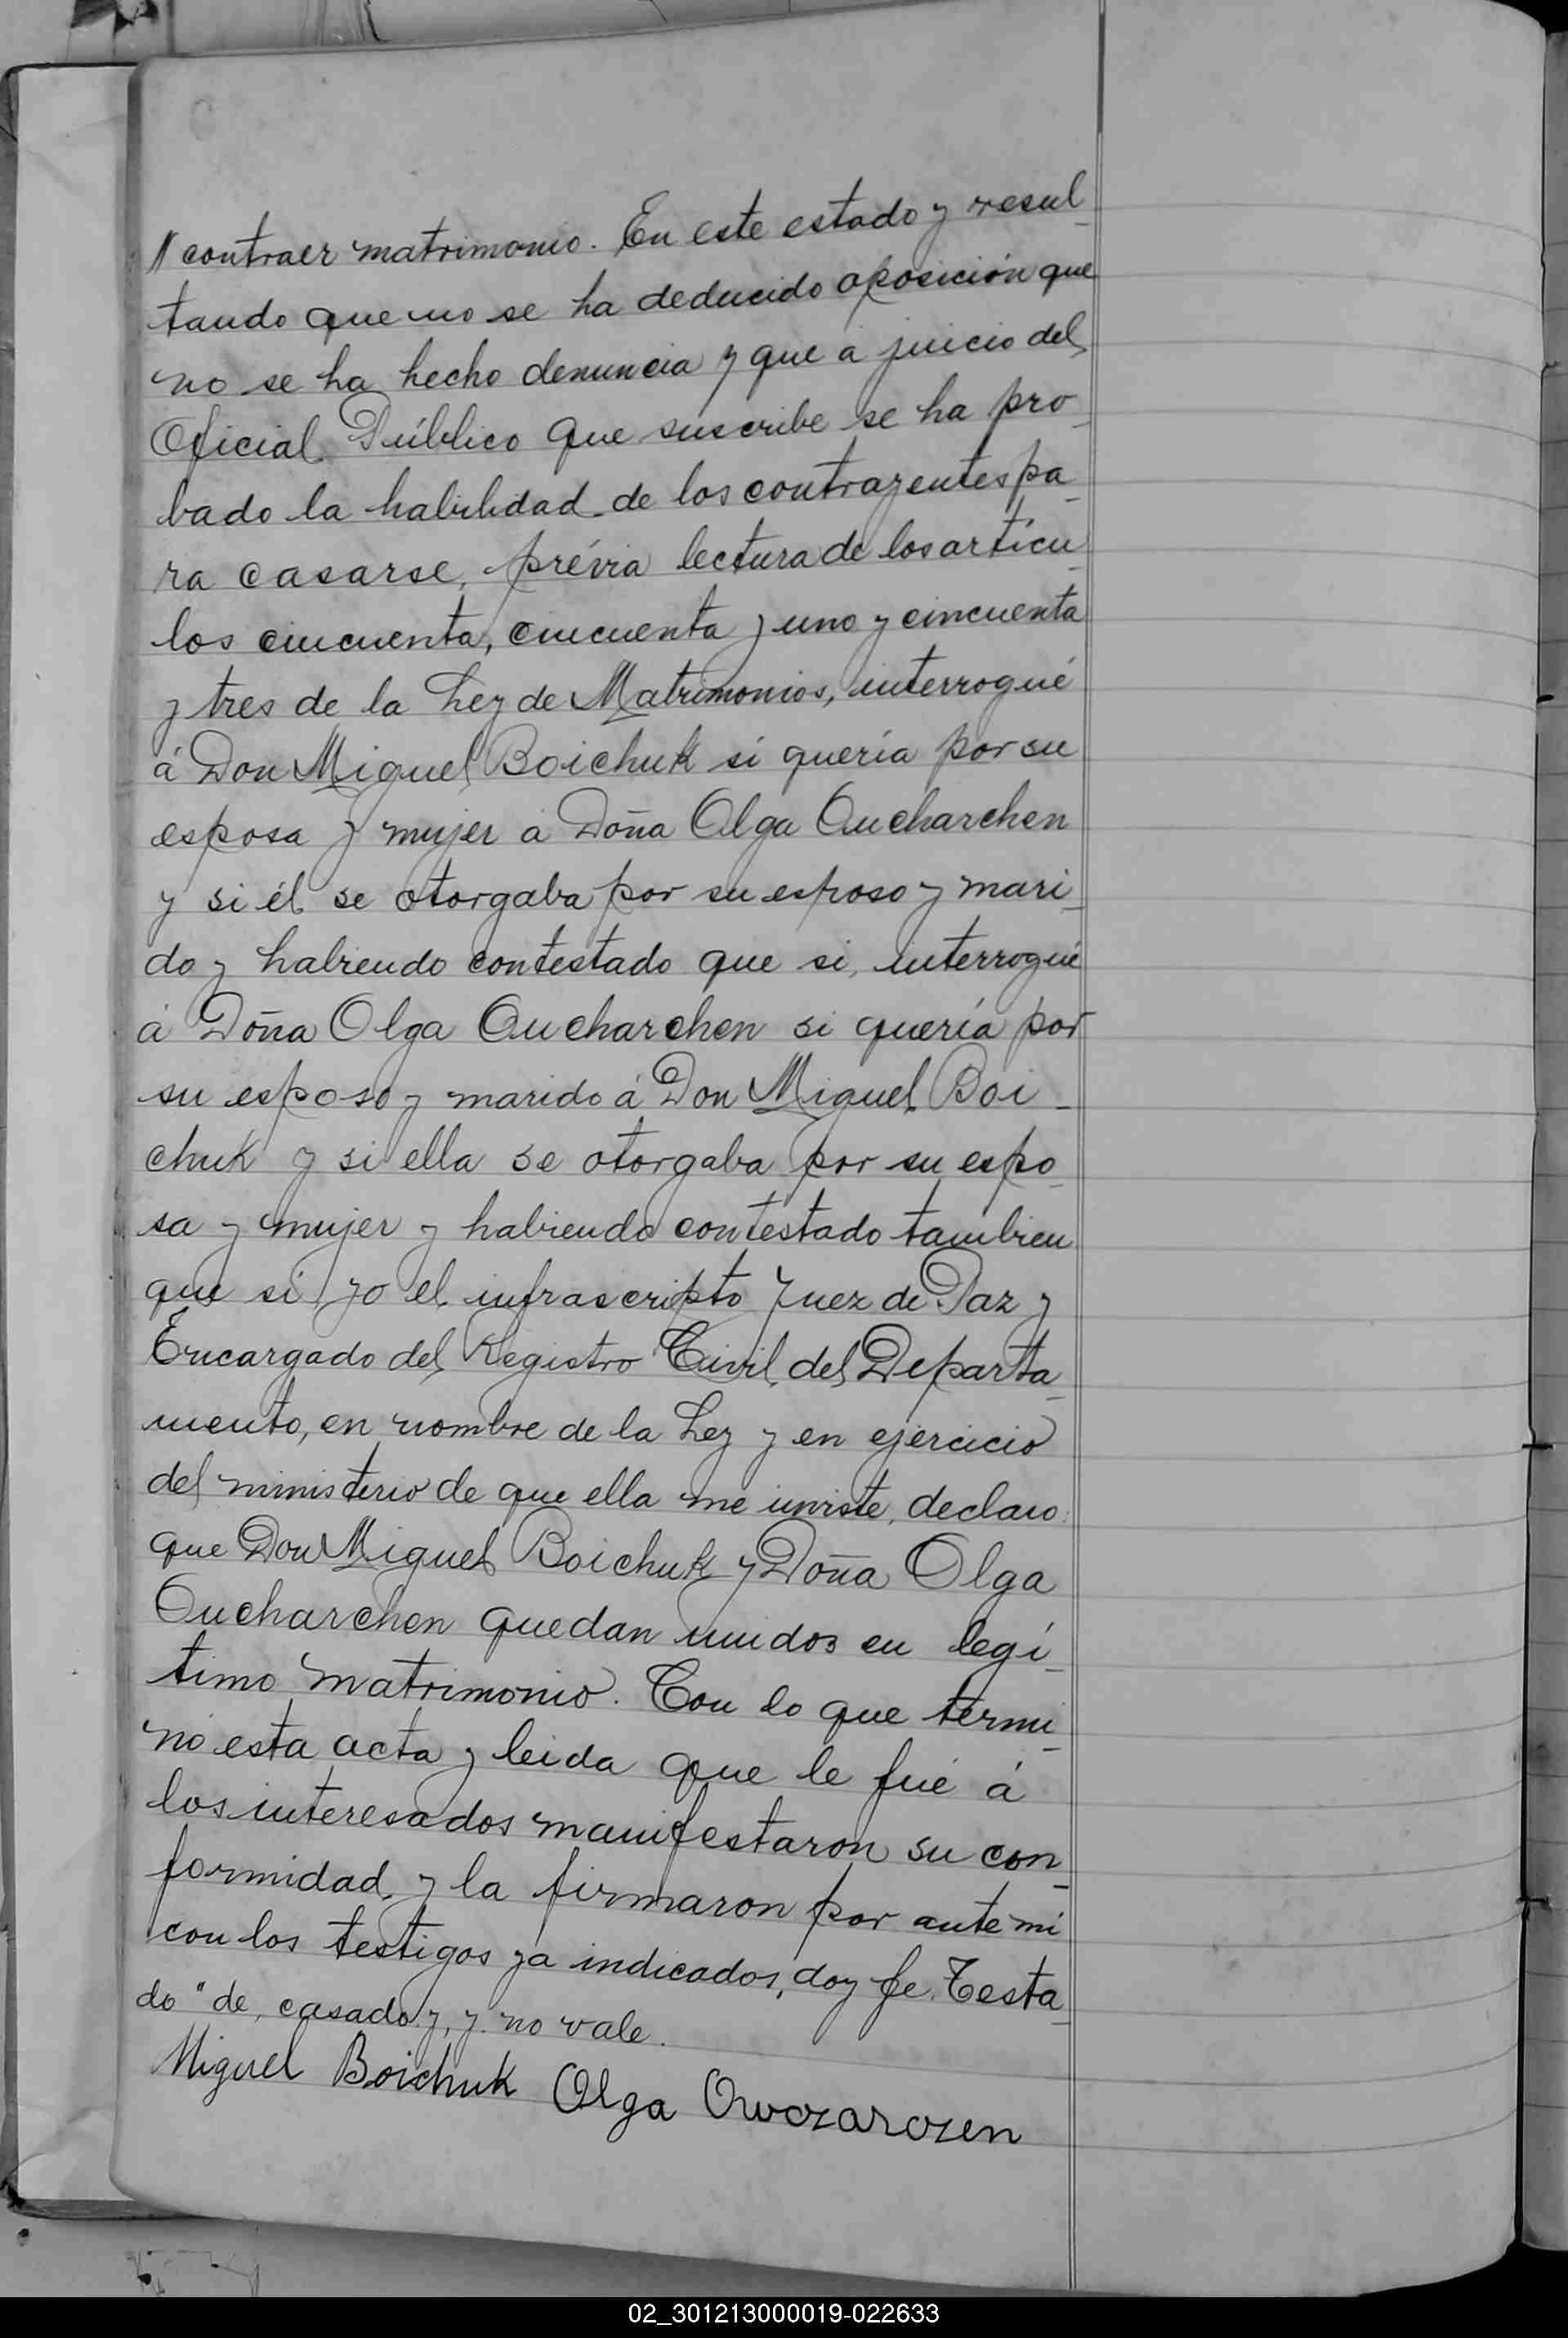 // contraer matrimonio. En este estado y resul_
tando que no se ha deducido oposición que
no se ha hecho denuncia y que á juicio del
Oficial Público que suscribe se ha pro_
bado la habilidad de los contrayentes pa_
ra casarse, prévia lectura de los artícu_
los cincuenta, cincuenta y uno y cincuenta
y tres de la Ley de Matrimonios, interrogué
á Don Miguel Boichuk si quería por su
esposa y mujer á Doña Olga Oucharchen
y si él se otorgaba por su esposo y mari_
do y habiendo contestado que si, interrogué
á Doña Olga Oucharchen si quería por
su esposo y marido á Don Miguel Boi_
chuk y si ella se otorgaba por su espo_
sa y mujer y habiendo contestado tambien
que si yo el infrascripto Juez de Paz y
Encargado del Registro Civil del Departa_
mento, en nombre de la Ley y en ejercicio
del ministerio de que ella me inviste, declaro:
que Don Miguel Boichuk y Doña Olga
Oucharchen quedan unidos en legí_
timo matrimonio. Con lo que termi_
nó esta acta y leida que le fué á
los interesados manifestaron su con_
formidad y la firmaron por ante mí
con los testigos ya indicados, doy fe. Testa_
do "de, casado y, y no vale.
Miguel Boichuk Olga Owczarczen
02_301213000019-022633